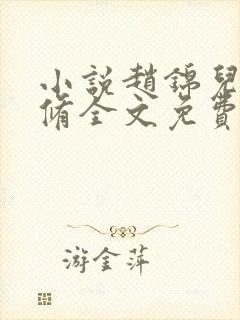 小說趙錦兒
脩全文免費
游金萍